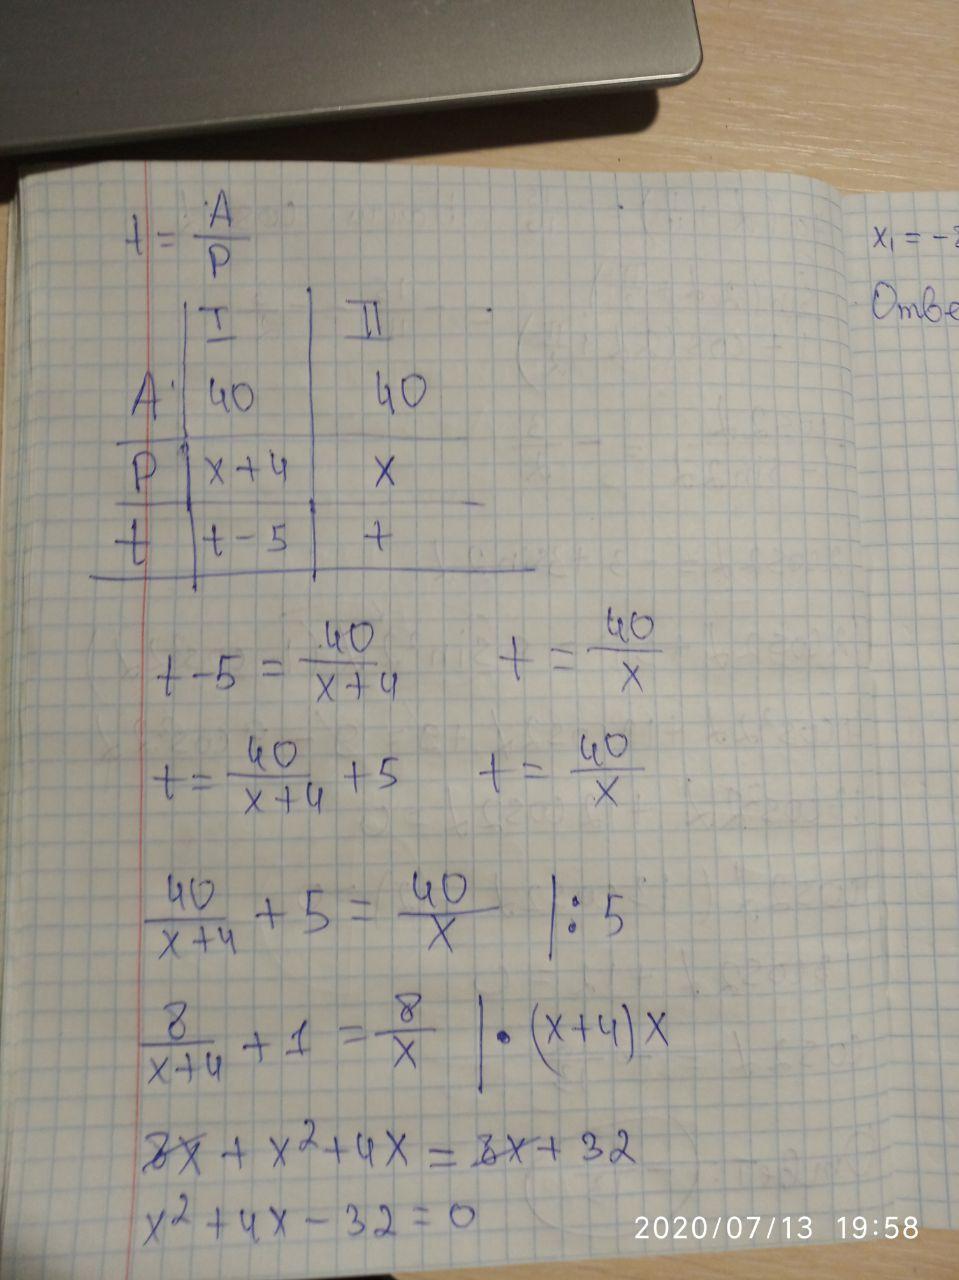 t = A/P
I II
A 40 40
P x+4 x
t t-5 t
t-5 = 40/(x+4) t = 40/x
t = 40/(x+4) + 5 t = 40/x
40/(x+4) + 5 = 40/x |: 5
8/(x+4) + 1 = 8/x | • (x+4)x
8x + x² + 4x = 8x + 32
x² + 4x - 32 = 0
x₁ = -
2020/07/13 19:58